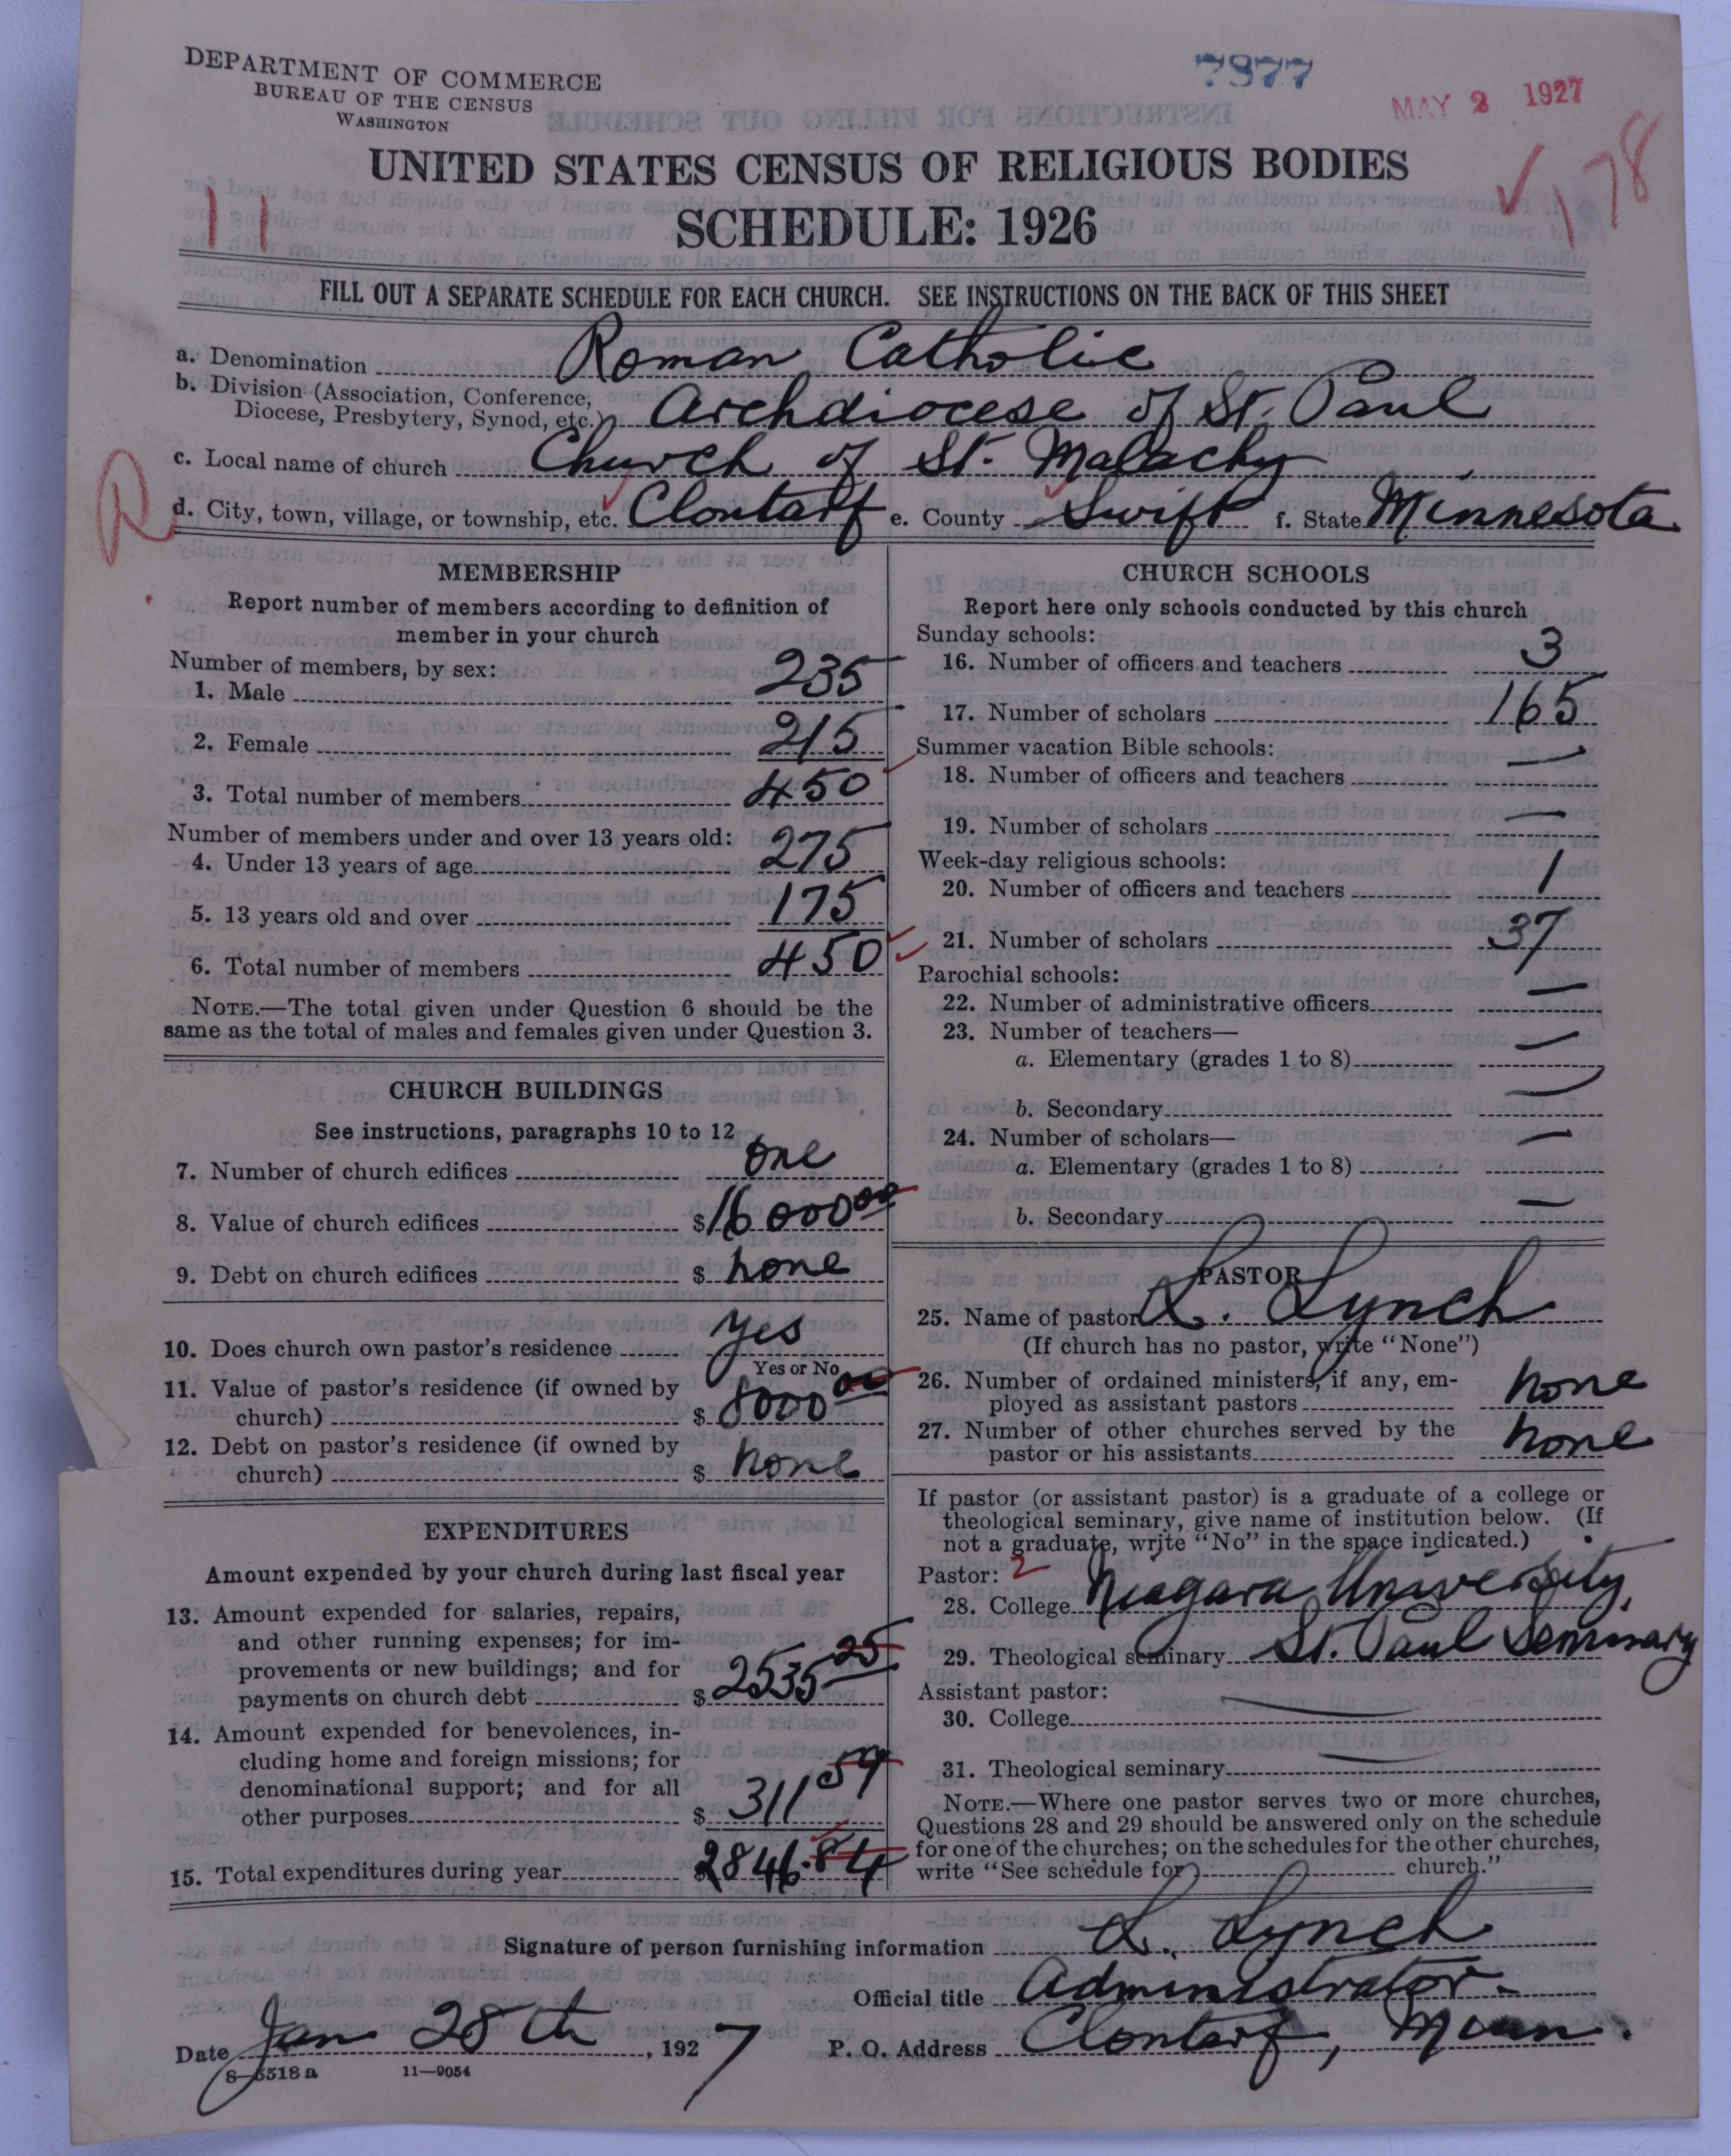 DEPARTMENT OF COMMERCE
BUREAU OF THE CENSUS
WASHINGTON
7877
MAY 2 1927
178
11
UNITED STATES CENSUS OF RELIGIOUS BODIES
SCHEDULE: 1926
FILL OUT A SEPARATE SCHEDULE FOR EACH CHURCH. SEE INSTRUCTIONS ON THE BACK OF THIS SHEET
a. Denomination Roman Catholic
b. Division (Association, Conference, Diocese, Presbytery, Synod, etc.) Archdiocese of St. Paul
c. Local name of church Church of St. Malachy
R
d. City, town, village, or township, etc. Clontarf e. County Swift f. State Minnesota
MEMBERSHIP
Report number of members according to definition of
member in your church
Number of members, by sex:
1. Male 235
2. Female 215
3. Total number of members 450
Number of members under and over 13 years old:
4. Under 13 years of age 275
5. 13 years old and over 175
6. Total number of members 450
NOTE.—The total given under Question 6 should be the
same as the total of males and females given under Question 3.
CHURCH BUILDINGS
See instructions, paragraphs 10 to 12
7. Number of church edifices one
8. Value of church edifices $16000 00
9. Debt on church edifices $ none
10. Does church own pastor's residence yes
Yes or No
11. Value of pastor's residence (if owned by
church) $ 8000 00
12. Debt on pastor's residence (if owned by
church) $ none
EXPENDITURES
Amount expended by your church during last fiscal year
13. Amount expended for salaries, repairs,
and other running expenses; for im-
provements or new buildings; and for
payments on church debt $ 2535 25
14. Amount expended for benevolences, in-
cluding home and foreign missions; for
denominational support; and for all
other purposes $ 311 59
15. Total expenditures during year $2846.84
CHURCH SCHOOLS
Report here only schools conducted by this church
Sunday schools:
16. Number of officers and teachers 3
17. Number of scholars 165
Summer vacation Bible schools:
18. Number of officers and teachers —
19. Number of scholars —
Week-day religious schools:
20. Number of officers and teachers 1
21. Number of scholars 37
Parochial schools:
22. Number of administrative officers —
23. Number of teachers—
a. Elementary (grades 1 to 8) —
b. Secondary —
24. Number of scholars—
a. Elementary (grades 1 to 8) —
b. Secondary —
PASTOR
25. Name of pastor L. Lynch
(If church has no pastor, write "None")
26. Number of ordained ministers, if any, em-
ployed as assistant pastors none
27. Number of other churches served by the
pastor or his assistants none
If pastor (or assistant pastor) is a graduate of a college or
theological seminary, give name of institution below. (If
not a graduate, write "No" in the space indicated.)
Pastor: 2
28. College Niagara University,
29. Theological seminary St. Paul Seminary
Assistant pastor:
30. College —
31. Theological seminary —
NOTE.—Where one pastor serves two or more churches,
Questions 28 and 29 should be answered only on the schedule
for one of the churches; on the schedules for the other churches,
write "See schedule for church."
Signature of person furnishing information L. Lynch
Official title Administrator.
Date Jan 28th, 1927 P. O. Address Clontarf, Minn.
8—5518 a 11—9054